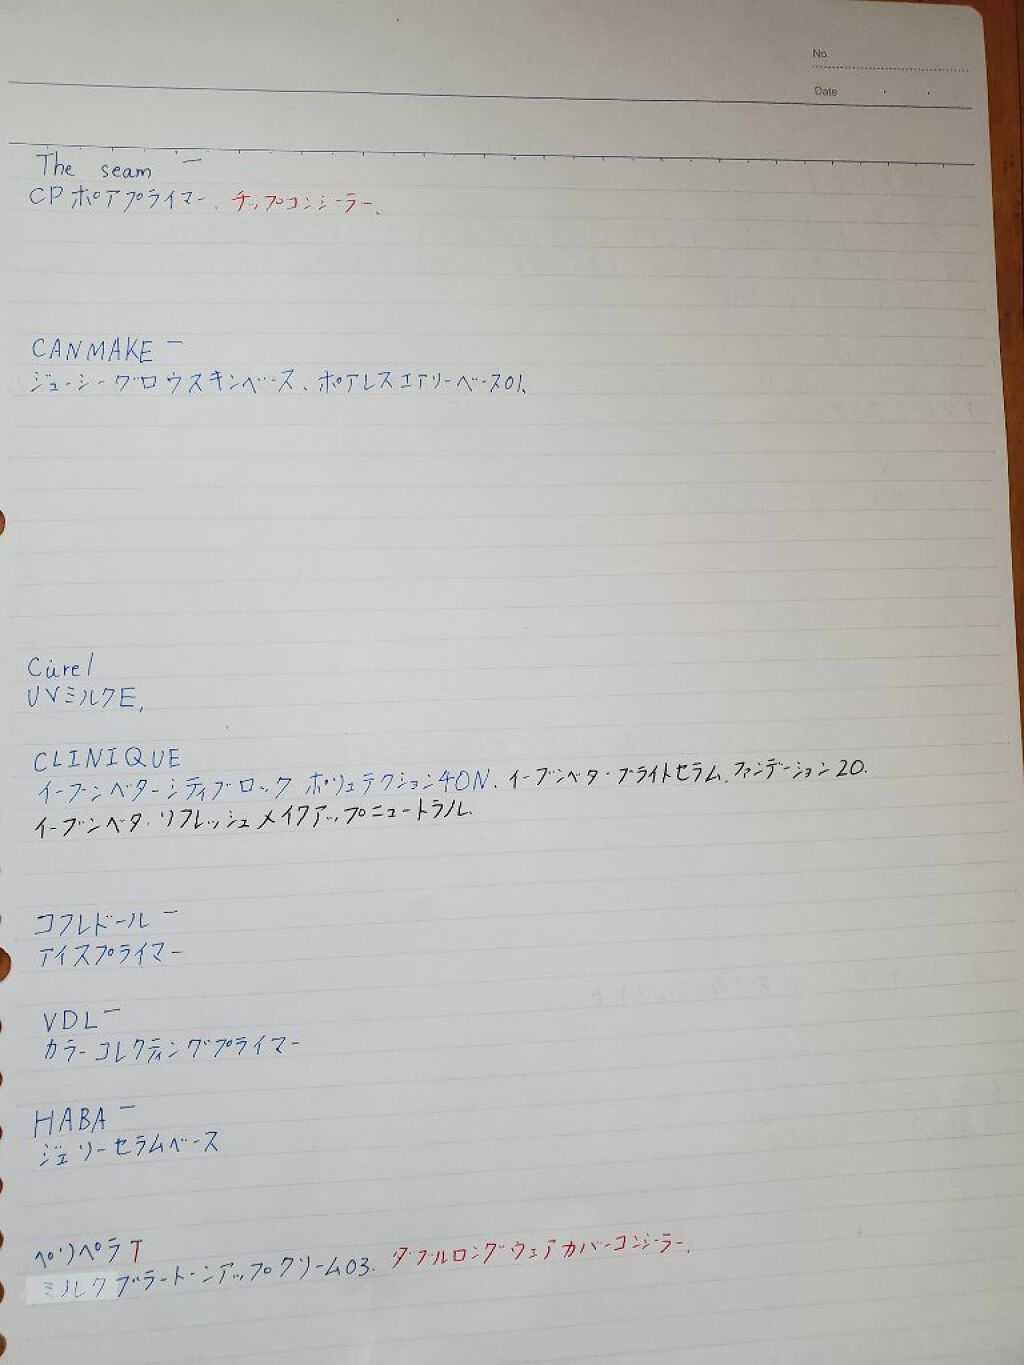 No.
Date
The seam ー
CPポアプライマー、チップコンシーラー、
CANMAKE ー
ジューシーグロウスキンベース、ポアレスエアリーベース01、
Curel
UVミルクE,
CLINIQUE
イーブンベターシティブロック ポリュテクション40N、イーブンベターブライトセラム、ファンデーション20.
イーブンベター リフレッシュメイクアップニュートラル.
コフレドール ー
アイスプライマー
VDL ー
カラーコレクティングプライマー
HABA ー
ジェリーセラムベース
ペリペラ T
ミルクブラートーンアップクリーム03. ダブルロングウェアカバーコンシーラー、